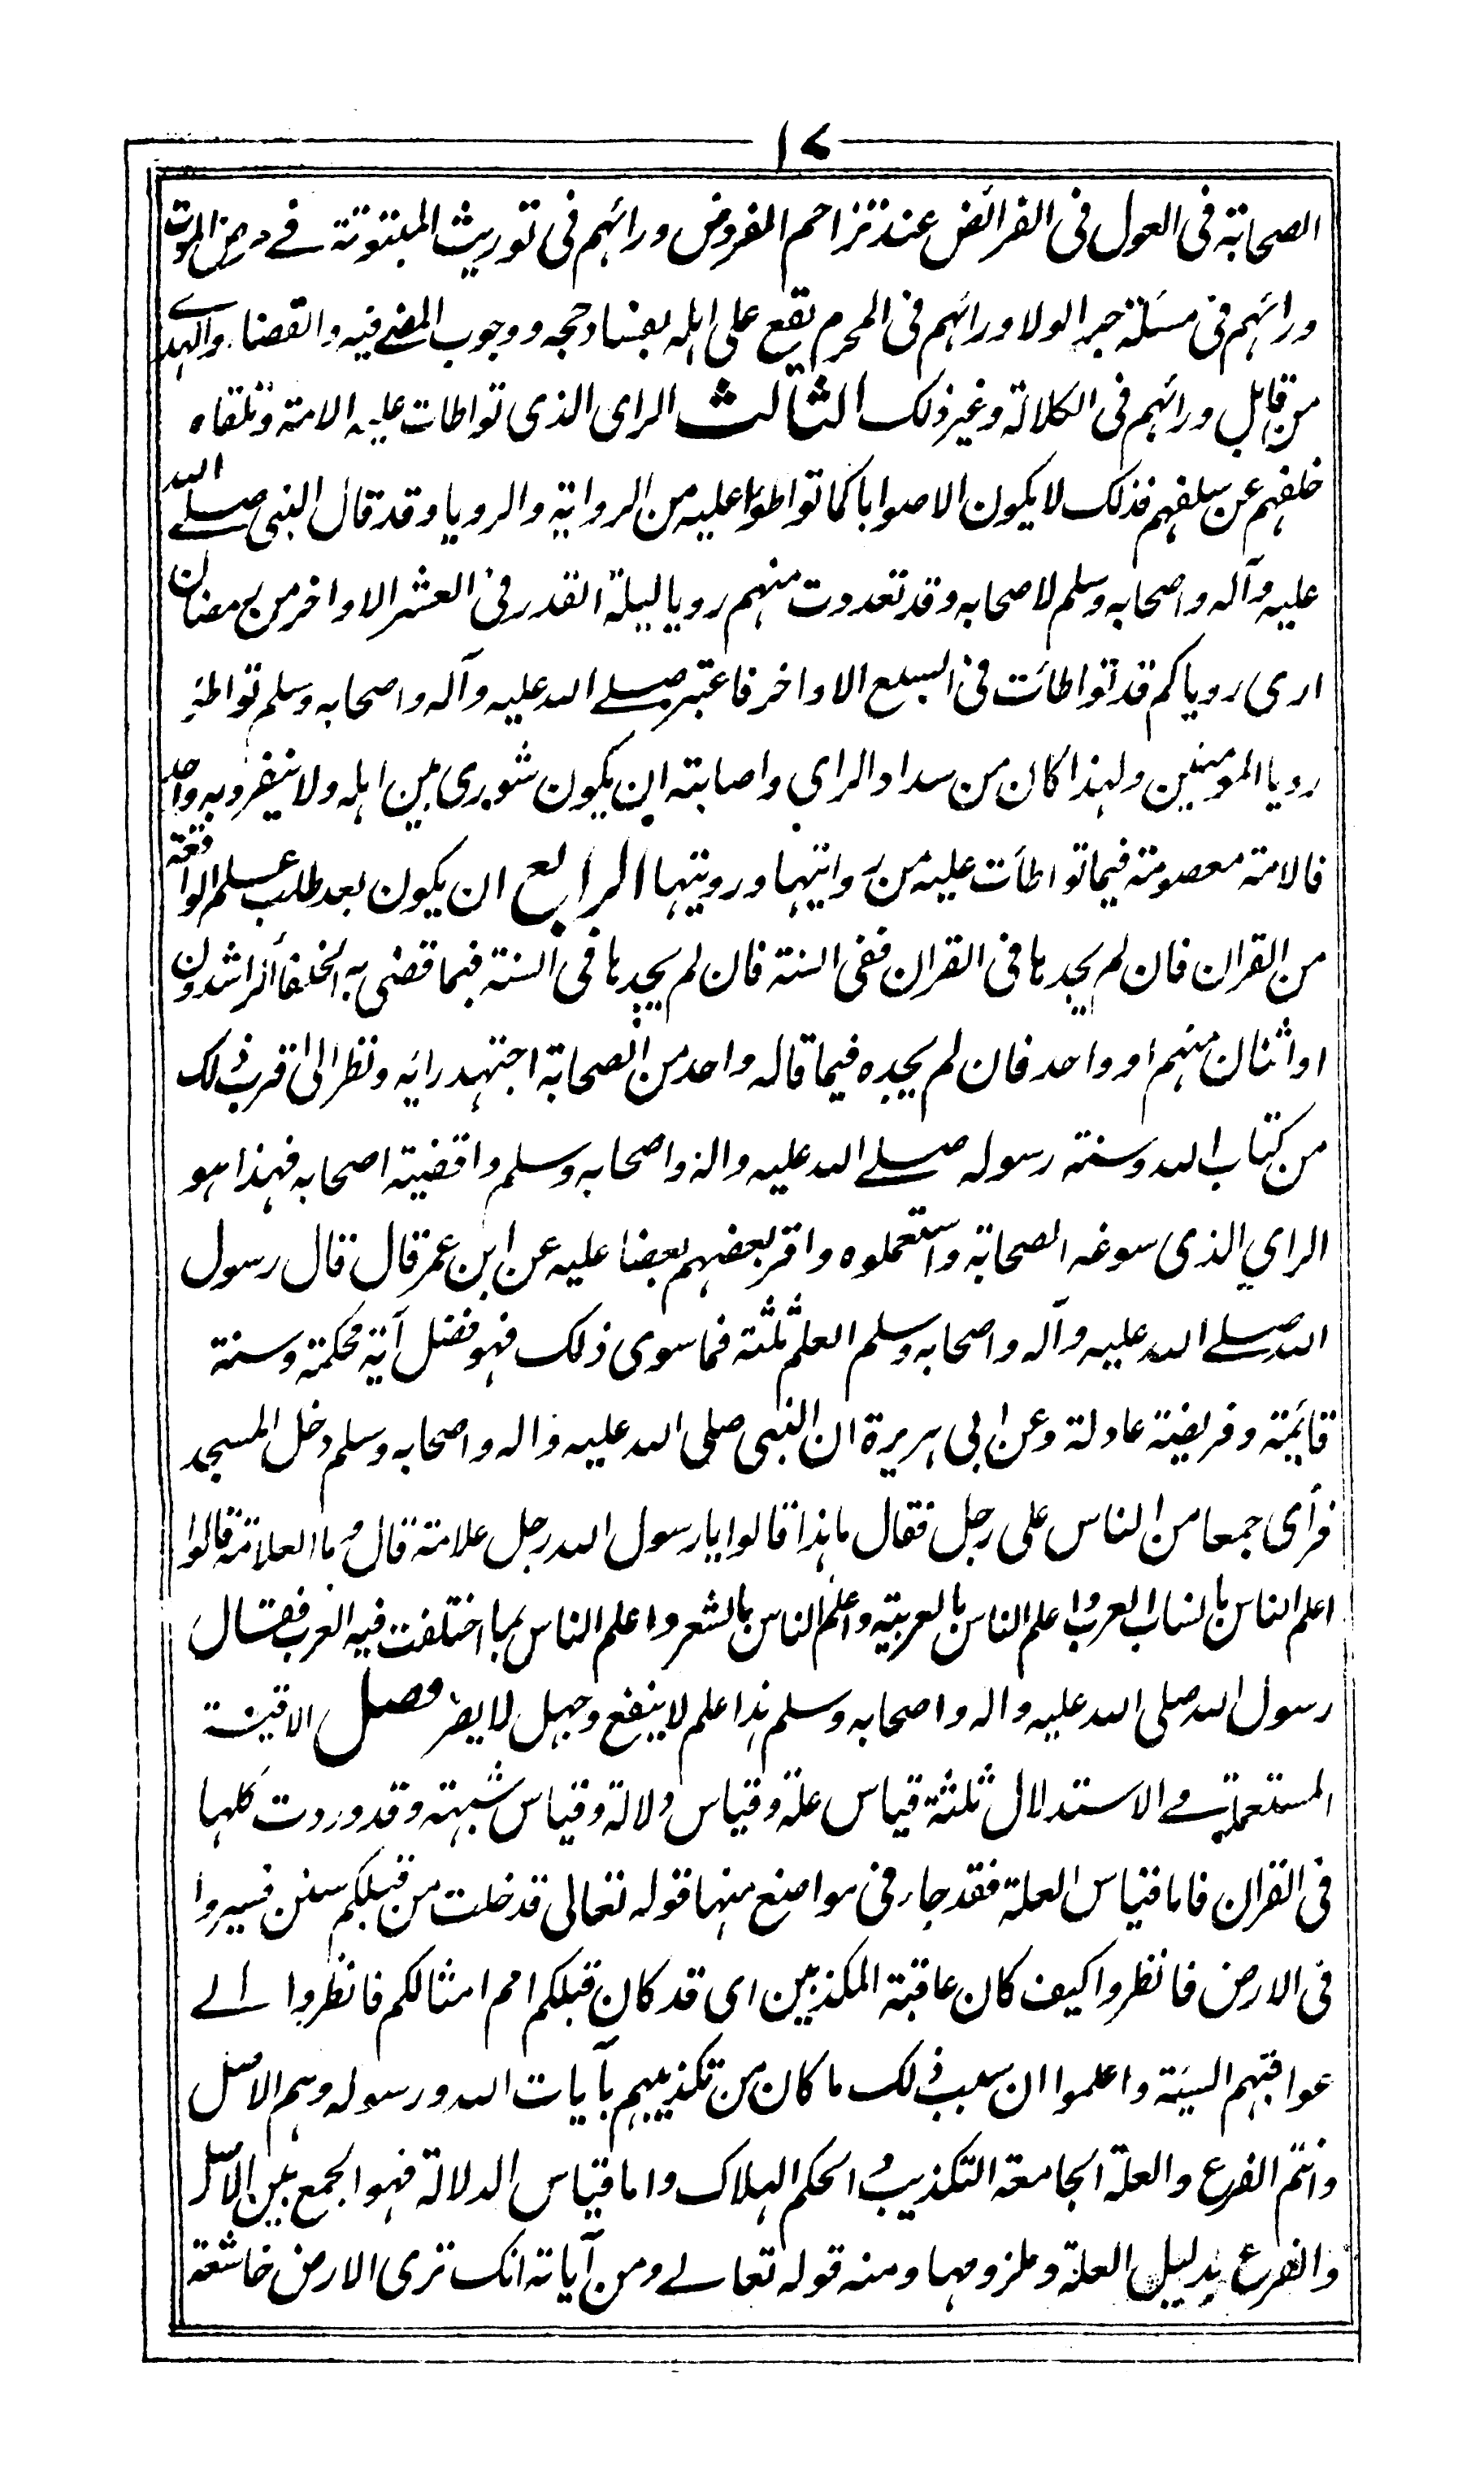 ١٧
الصحابة في العول في الفرائض عند تزاحم الفروض ورائهم في توريث المبتوتة في مرض الموت
ورائهم في مسئلة جر الولا ورائهم في المحرم يقع على اهله بفساد حجه ووجوب المضي فيه والقضاء والهدي
من قابل ورائهم في الكلالة وغير ذلك الثالث الراى الذى تواطات عليه الامة وتلقاه
خلفهم عن سلفهم فذلك لا يكون الا صوابا كما تواطؤا عليه من الرواية والرويا وقد قال النبى صلى الله
عليه وآله واصحابه وسلم لاصحابه وقد تعددت منهم رويا ليلة القدر في العشر الاواخر من رمضان
ارى روياكم قد تواطأت في السبع الاواخر فاعتبر صلى الله عليه وآله واصحابه وسلم تواطئ
رويا المومنين ولهذا كان من سداد الراي واصابته ان يكون شورى بين اهله ولا ينفرد به واحد
فالامة معصومة فيما تواطأت عليه من روايتها ورويتها الرابع ان يكون بعد طلب علم الواقعة
من القران فان لم يجدها في القران ففى السنة فان لم يجدها في السنة فبما قضى به الخلفأ الراشدون
او اثنان منهم او واحد فان لم يجده فيما قاله واحد من الصحابة اجتهد رايه ونظر الى اقرب ذلك
من كتاب الله وسنة رسوله صلى الله عليه واله واصحابه وسلم واقضية اصحابه فهذا هو
الراي الذى سوغه الصحابة واستعملوه واقر بعضهم بعضا عليه عن ابن عمر قال قال رسول
الله صلى الله عليه وآله واصحابه وسلم العلم ثلثة فما سوى ذلك فهو فضل آية محكمة وسنة
قائمة وفريضة عادلة وعن ابى هريرة ان النبى صلى الله عليه واله واصحابه وسلم دخل المسجد
فرأى جمعا من الناس على رجل فقال ما هذا قالوا يا رسول الله رجل علامة قال وما العلامة قالوا
اعلم الناس بانساب العرب واعلم الناس بالعربية واعلم الناس بالشعر واعلم الناس بما اختلفت فيه العرب فقال
رسول الله صلى الله عليه واله واصحابه وسلم هذا علم لا ينفع وجهل لا يضر فصل الاقيسة
المستعملة في الاستدلال ثلثة قياس علة وقياس دلالة وقياس شبهة وقد وردت كلها
في القران فاما قياس العلة فقد جاء في مواضع منها قوله تعالى قد خلت من قبلكم سنن فسيروا
في الارض فانظروا كيف كان عاقبة المكذبين اى قد كان قبلكم امم امثالكم فانظروا الى
عواقبهم السيئة واعلموا ان سبب ذلك ما كان من تكذيبهم بآيات الله ورسوله وهم الاصل
وانتم الفرع والعلة الجامعة التكذيب والحكم الهلاك واما قياس الدلالة فهو الجمع بين الاصل
والفرع بدليل العلة وملزومها ومنه قوله تعالى ومن آياته انك ترى الارض خاشعة